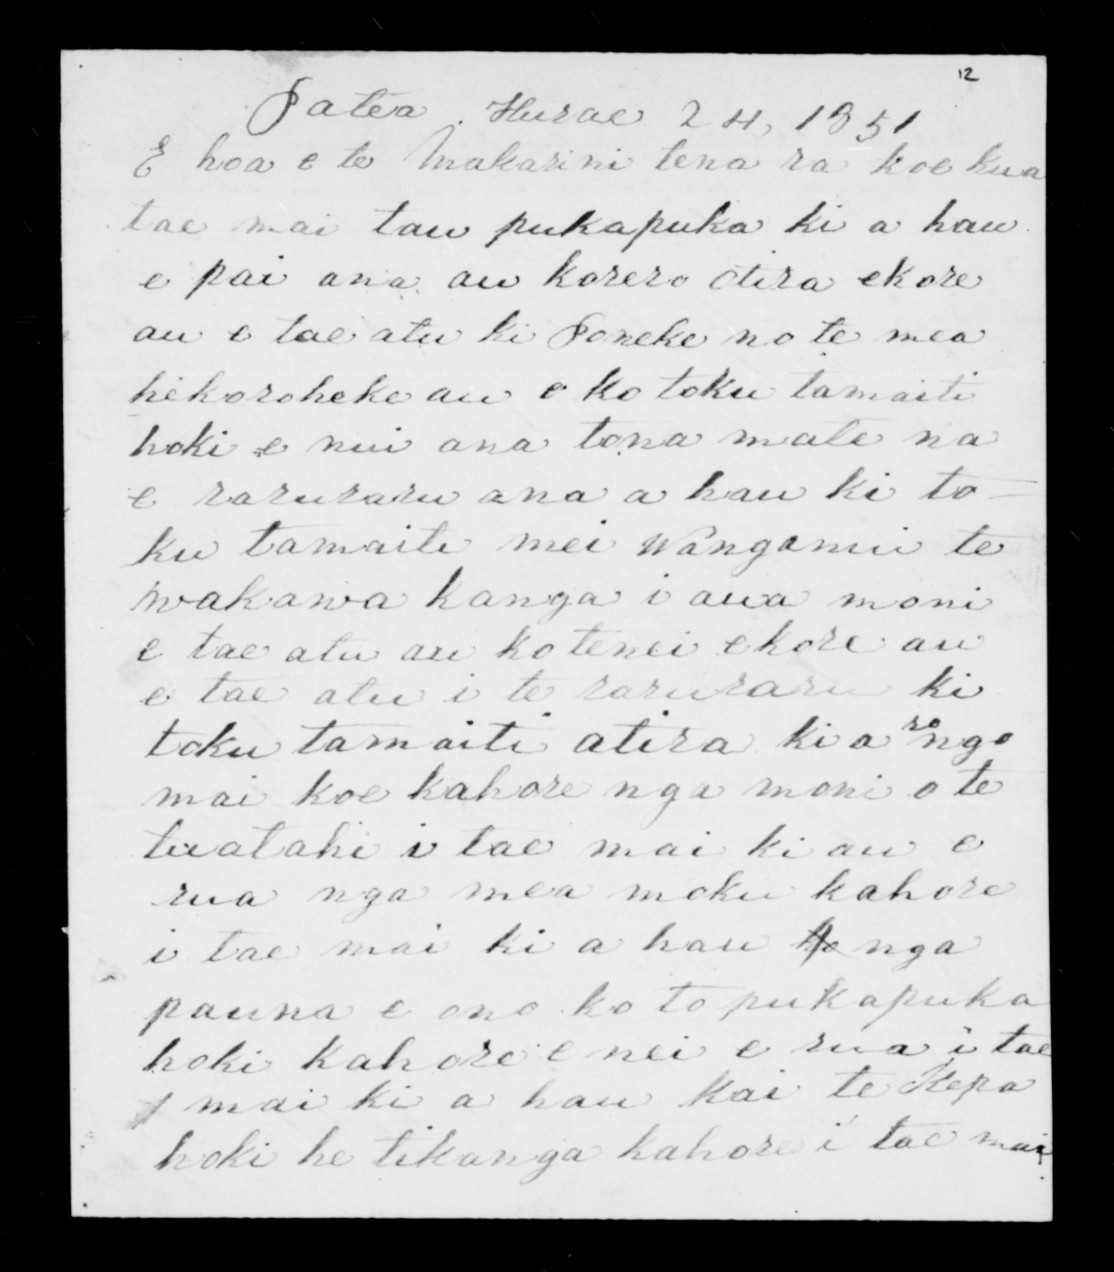 12
Patea Hurae 24, 1851
E hoa e te Makarini tena ra koe kua
tae mai tau pukapuka ki a hau
e pai ana au korero otira ekore
au e tae atu ki Poneke no te mea
hekoroheke au e ko toku tamaiti
hoki e nui ana tona mate na
e raruraru ana a hau ki to-
ku tamaiti mei Wanganui te
wakawa kanga i aua moni
e tae atu au ko tenei ekore au
e tae atu i te raruraru ki
toku tamaiti atira kia rongo
mai koe kahore nga moni o te
tuatahi i tae mai ki au e
rua nga mea moku kahore
i tae mai ki a hau ko nga
pauna e ono ko to pukapuka
hoki kahore e nei e rua i tae
mai ki a hau kai te Kepa
hoki he tikanga kahore i tae mai